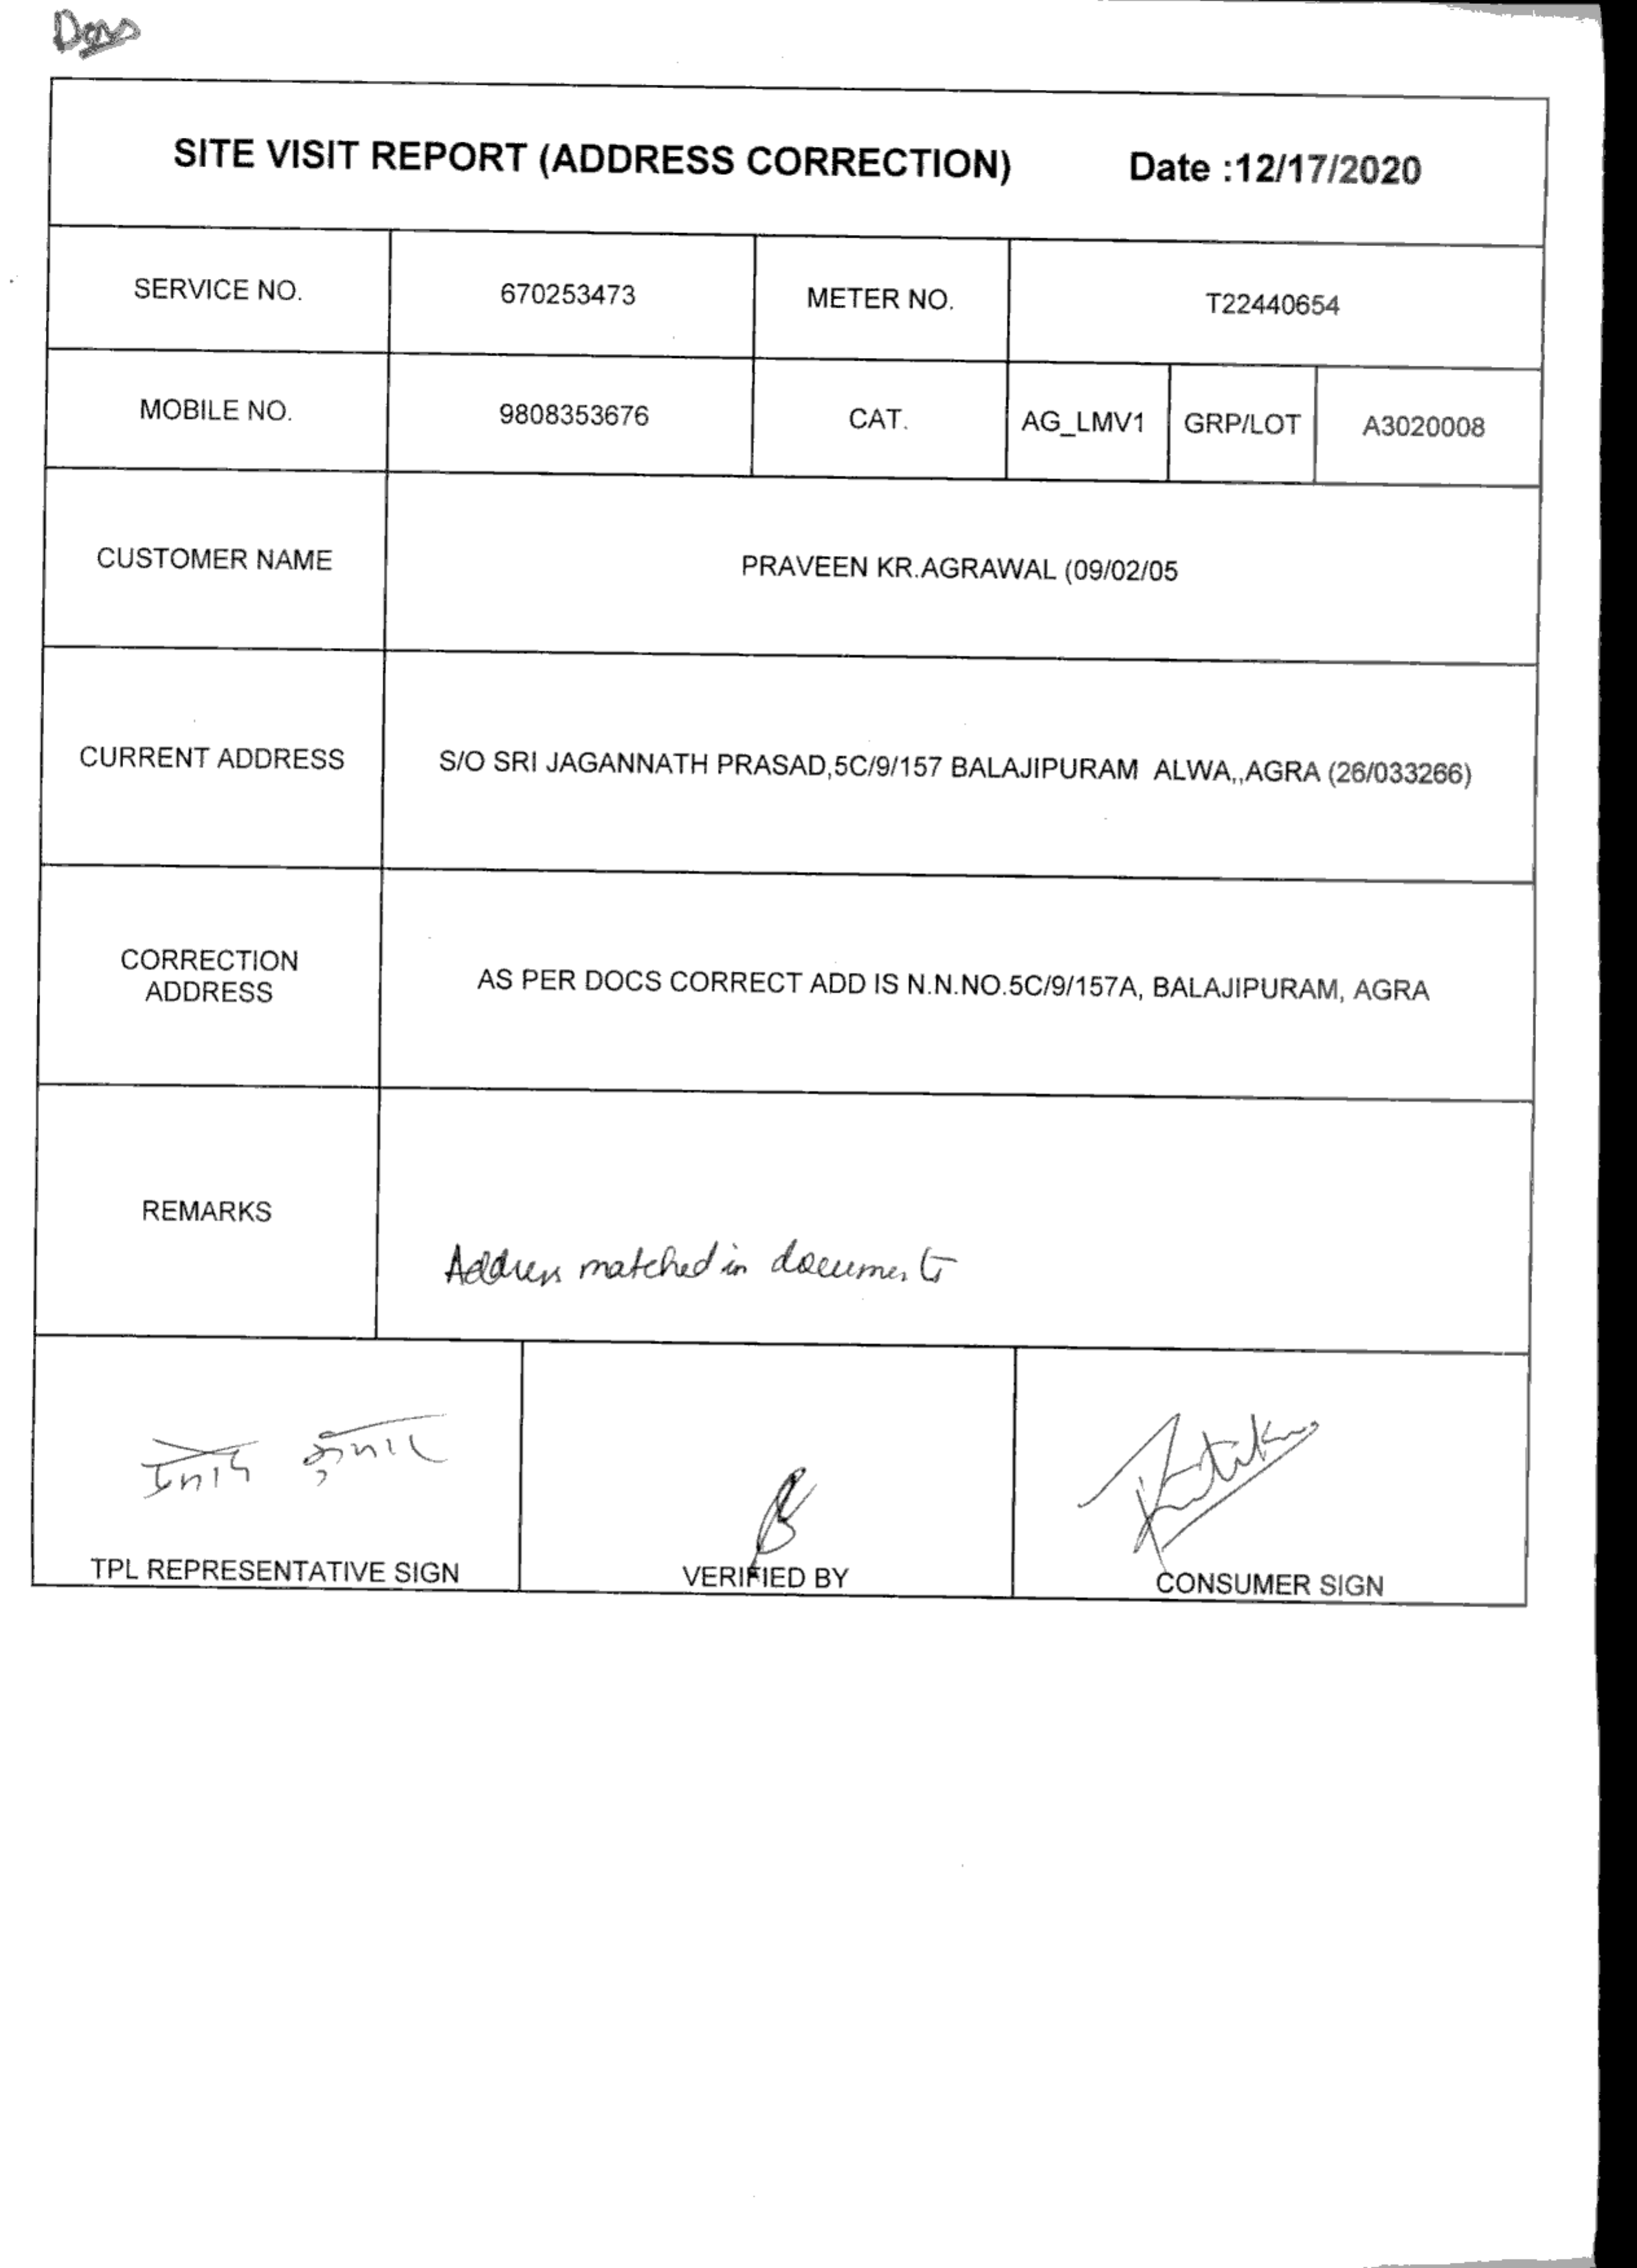 SITE VISIT REPORT (ADDRESS CORRECTION) Date :12/17/2020
SERVICE NO. 670253473 METER NO. T22440654
MOBILE NO. 9808353676 CAT. AG_LMV1 GRP/LOT A3020008
CUSTOMER NAME PRAVEEN KR.AGRAWAL (09/02/05
CURRENT ADDRESS S/O SRI JAGANNATH PRASAD,5C/9/157 BALAJIPURAM ALWA,,AGRA (26/033266)
CORRECTION
ADDRESS
AS PER DOCS CORRECT ADD IS N.N.NO.5C/9/157A, BALAJIPURAM, AGRA
REMARKS
Address matched in documents
TPL REPRESENTATIVE SIGN VERIFIED BY CONSUMER SIGN